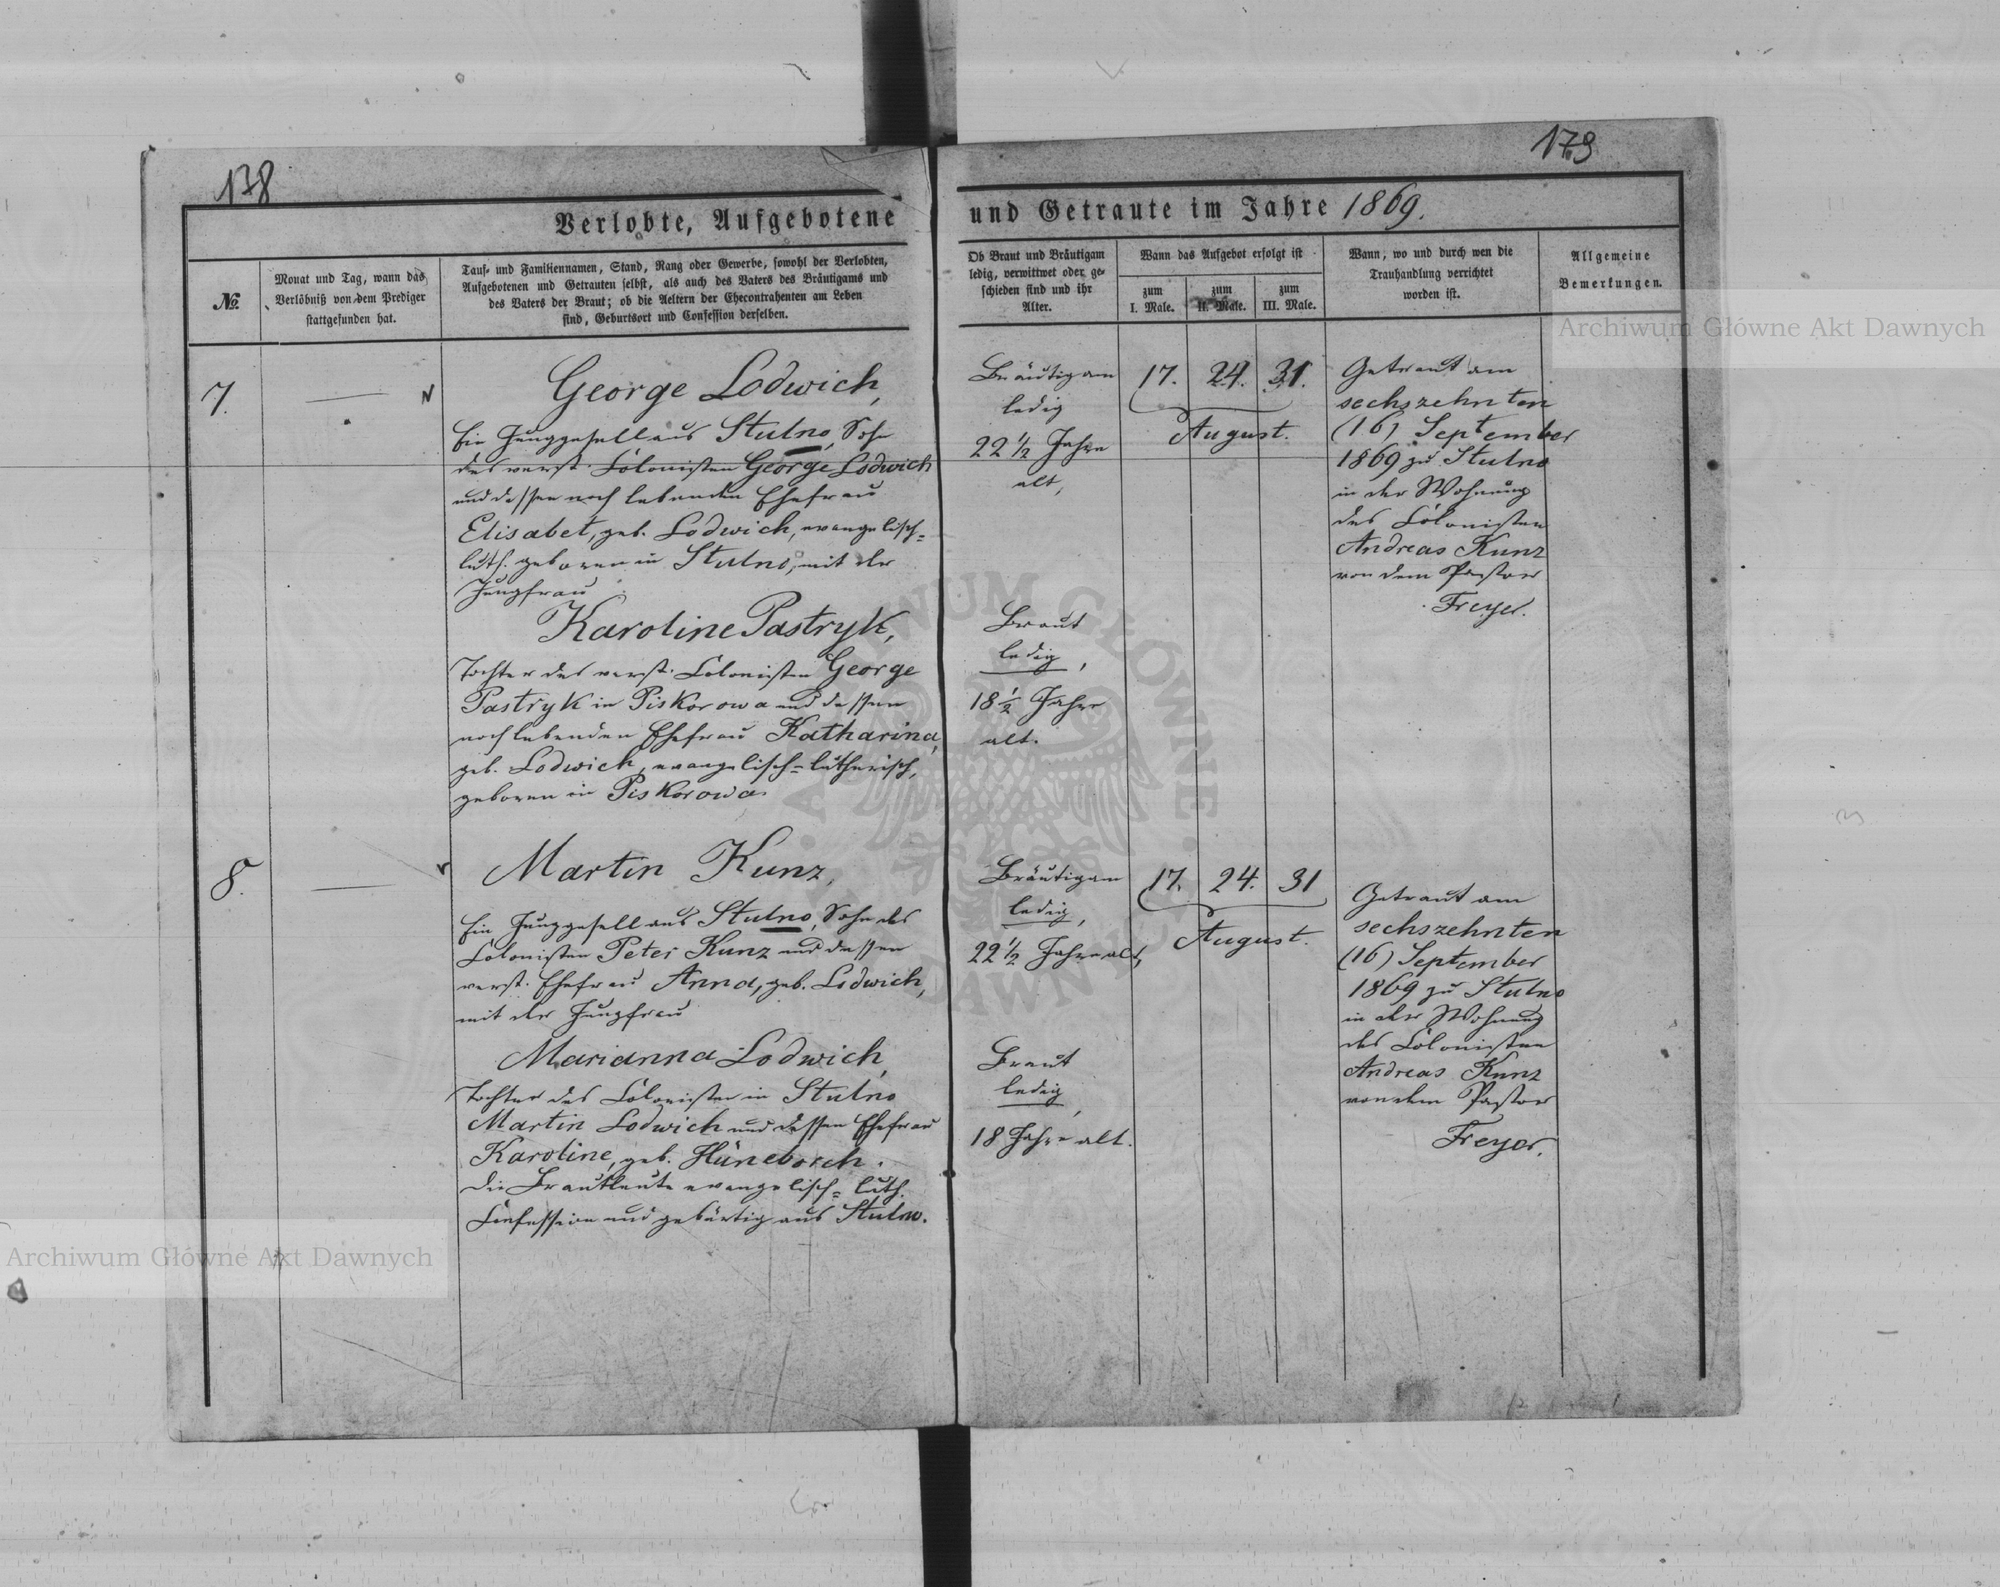 138
Verlobte, Aufgebotene
№.
Monat und Tag, wann das
Verlöbniß von dem Prediger
stattgefunden hat.
Tauf- und Familiennamen, Stand, Rang oder Gewerbe, sowohl der Verlobten,
Aufgebotenen und Getrauten selbst, als auch des Vaters des Bräutigams und
des Vaters der Braut; ob die Aeltern der Ehecontrahenten am Leben
sind, Geburtsort und Confession derselben.
7.
George Lodwich,
Ein Junggesell aus Stulno, Sohn
des verst. Colonisten George Lodwich
und dessen noch lebenden Ehefrau
Elisabet, geb. Lodwich, evangelisch=
luth. geboren in Stulno, mit der
Jungfrau
Karoline Pastryk,
Tochter des verst. Colonisten George
Pastryk in Piskorowa und dessen
noch lebenden Ehefrau Katharina,
geb. Lodwich, evangelisch=lutherisch,
geboren in Piskorowa.
8.
Martin Kunz,
Ein Junggesell aus Stulno, Sohn des
Colonisten Peter Kunz und dessen
verst. Ehefrau Anna, geb. Lodwich,
mit der Jungfrau
Marianna Lodwich,
Tochter des Colonisten in Stulno
Martin Lodwich und dessen Ehefrau
Karoline, geb. Hüneborch.
Die Brautleute evangelisch=luth.
Confession und gebürtig aus Stulno.
179
und Getraute im Jahre 1869.
Ob Braut und Bräutigam
ledig, verwittwet oder ge-
schieden sind und ihr
Alter.
Wann das Aufgebot erfolgt ist
zum
I. Male.
zum
II. Male.
zum
III. Male.
Wann, wo und durch wen die
Trauhandlung verrichtet
worden ist.
Allgemeine
Bemerkungen.
Bräutigam
ledig
22 1/2 Jahre
alt,
17. 24. 31.
August.
Getraut am
sechszehnten
(16) September
1869 zu Stulno
in der Wohnung
des Colonisten
Andreas Kunz
von dem Pastor
Freyer.
Braut
ledig,
18 1/2 Jahre
alt.
Bräutigam
ledig,
22 1/2 Jahre alt,
17. 24. 31
August.
Getraut am
sechszehnten
(16) September
1869 zu Stulno
in der Wohnung
des Colonisten
Andreas Kunz
von dem Pastor
Freyer.
Braut
ledig,
18 Jahre alt.
Archiwum Główne Akt Dawnych
Archiwum Główne Akt Dawnych
ARCHIWUM GŁÓWNE AKT DAWNYCH